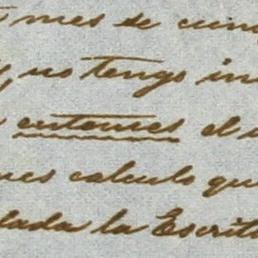 mes de cum
no tengo in
entonces el
ues calculo que
lada la Escrit